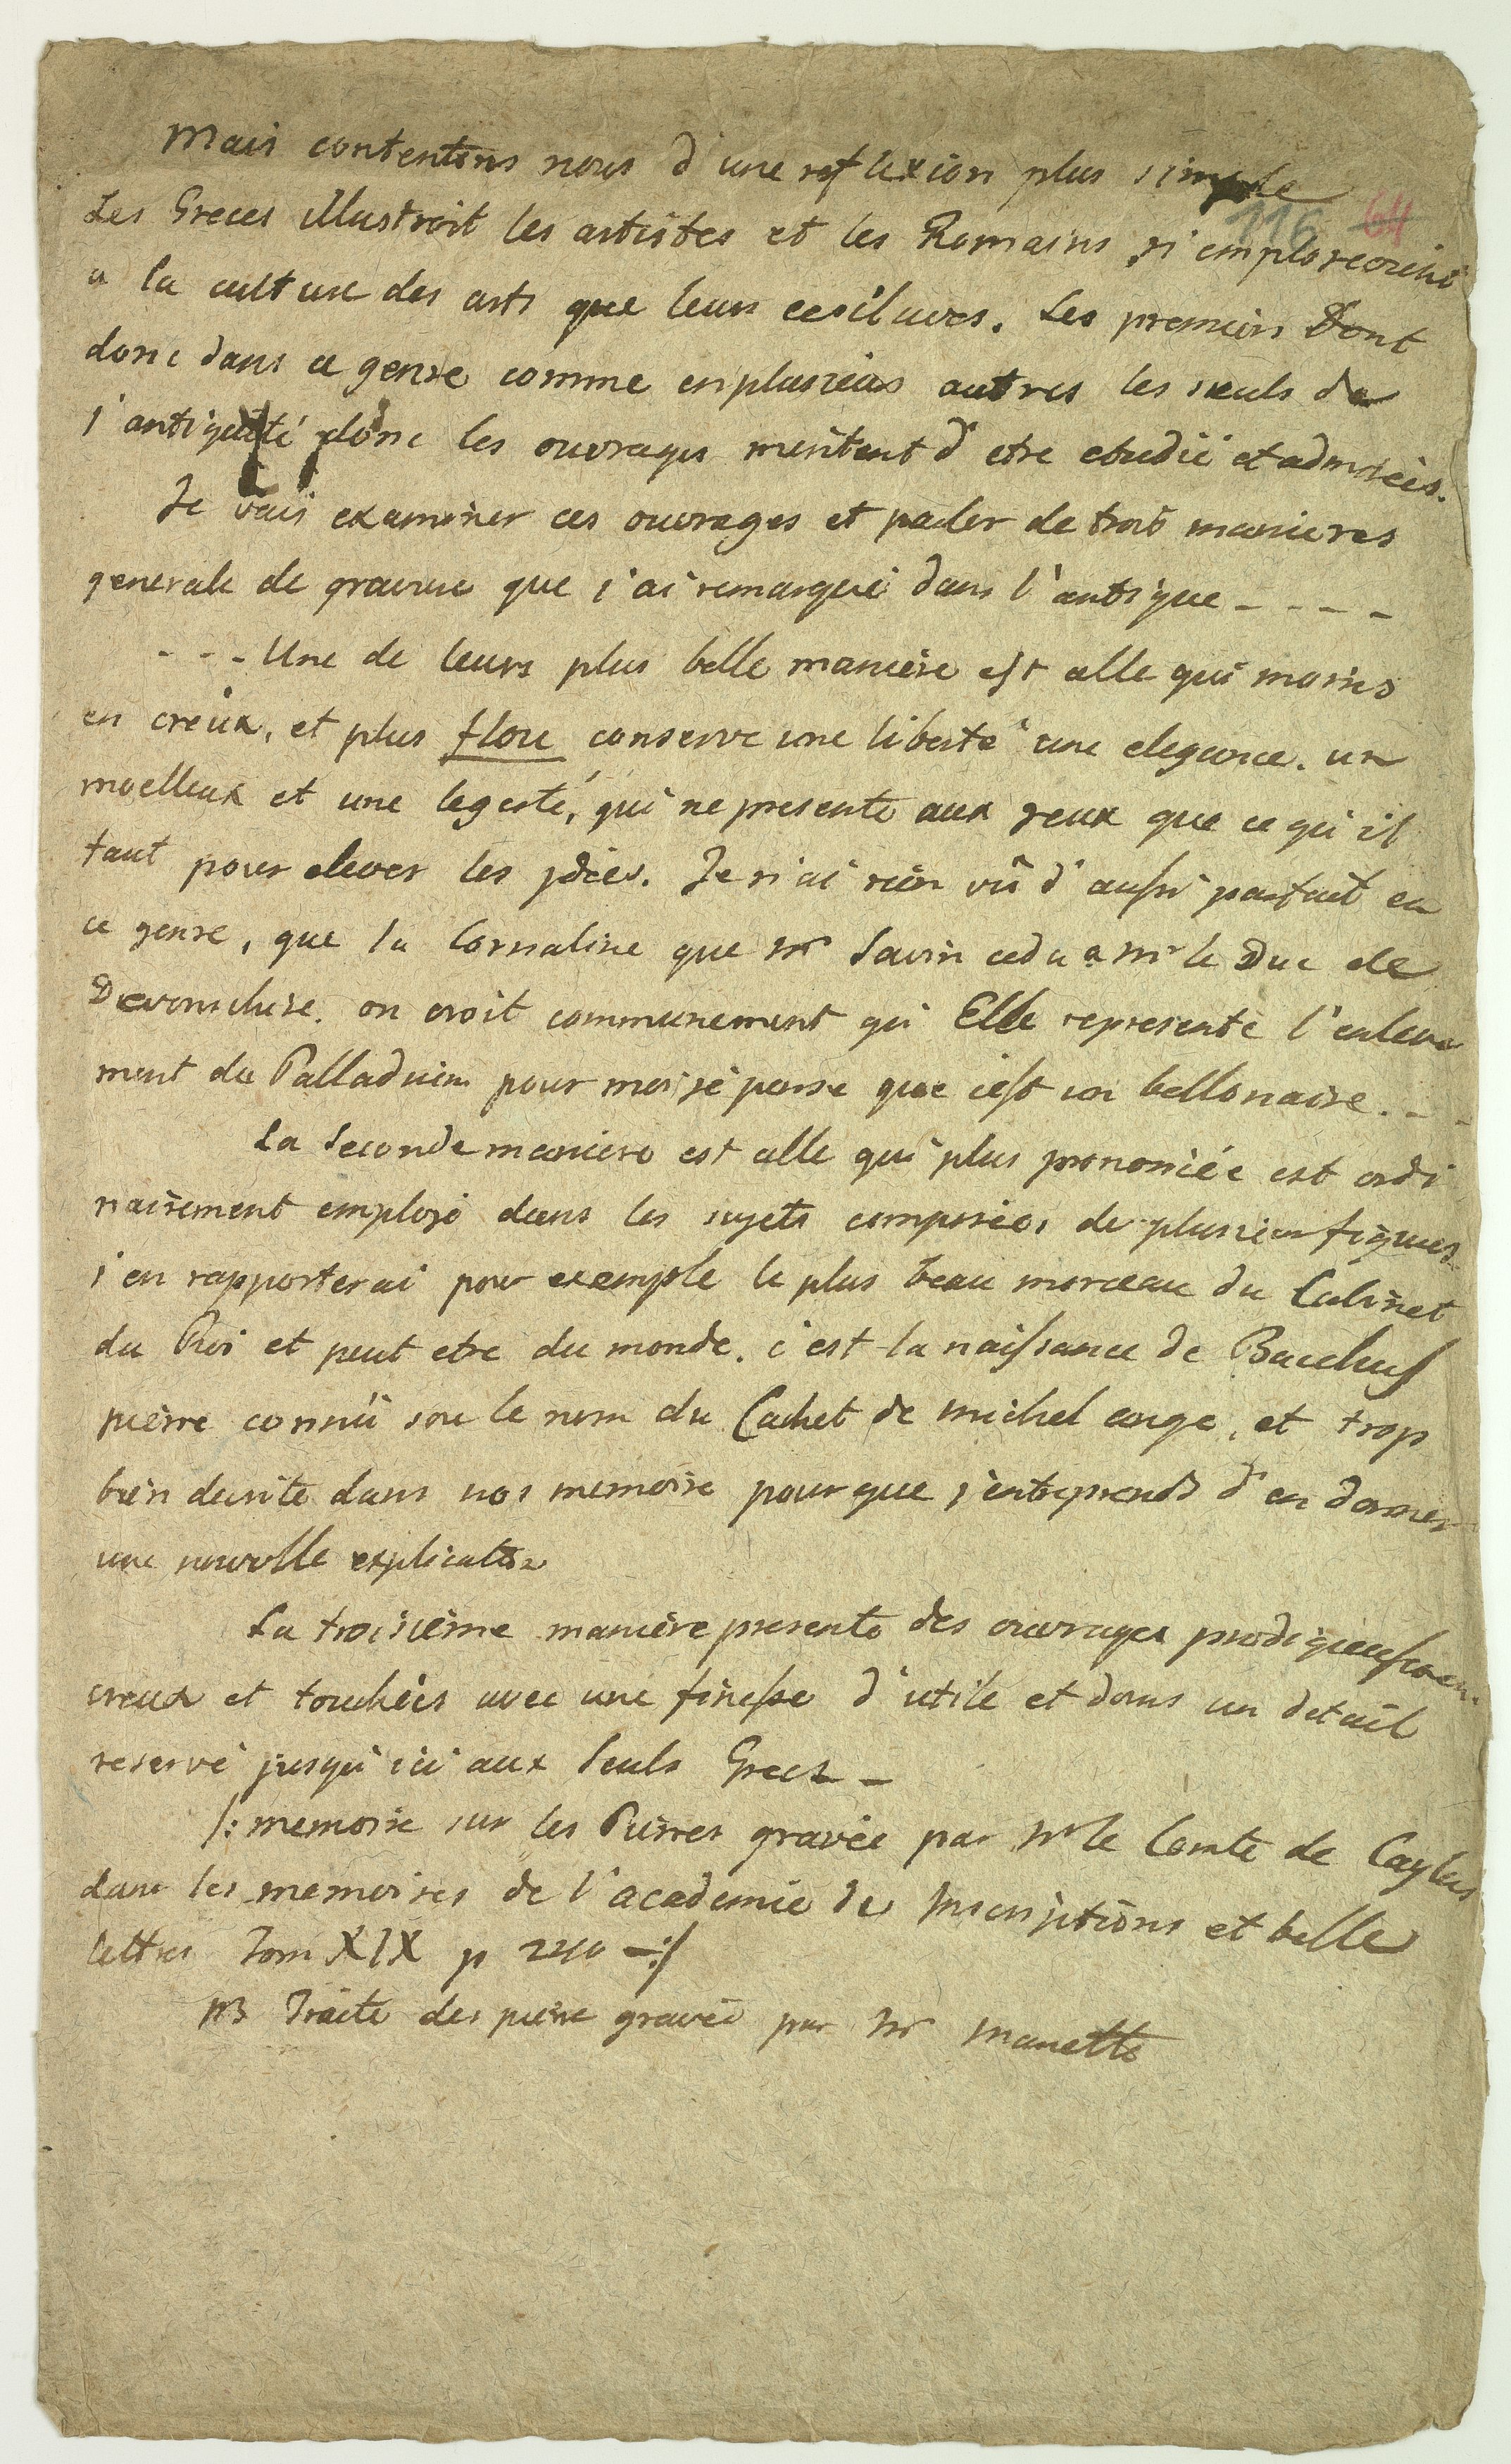 Mais contentons nous d'une reflexion plus simple
116 64
Les Greces illustroit les artistes et les Romains n'emploreoient
a la culture des arts que leurs eesilaves. Les premiers Sont
donc dans ce genre comme enplusieurs autres les seuls de
l'antiquité donc les ouvrages meritent d'etre etudié et admirées.
Je vais examiner ces ouvrages et parler de trois manieres
generale de gravure que j'ai remarqué dans l'antique - - - -
- - - Une de leurs plus belle maniere est celle qui moins
en creux, et plus floue conserve une liberté une elegance. un
moelleux et une legerté, qui ne presente aux yeux que ce qu'il
faut pour elever les ydées. Je n'ai rien vû d'aussi parfait en
ce genre, que la Cornaline que Mr Sevin ceda a Mr le Duc de
Devonschire. on croit communement qu'Elle represente l'enleve
ment du Palladium pour moi je pense que c'est un bellonaire. - -
La Seconde maniere est celle qui plus prononcée est ordi
nairement employé dans les sujets composées de plusieurs figures
j'en rapporterai pour exemple le plus beau morceau du Cabinet
du Roi et peut etre du monde. c'est la naissance de Bacchus
pierre connü sou le nom du Cachet de Michel ange, et trop
bien decrite dans nos memoire pour que j'entreprends d'en donner
une nouvelle explication
La troisième manière presente des ouvrages prodigieusemen.
creux et touchées avec une finesse d'utile et dans un detail
reservé jusqu'ici aux Seuls Grecs -
/: memoire sur les Pierres gravée par Mr le Comte de Caylus
dans les memoires de l'academie des Inscriptions et belle
lettres Tom XIX p 2210 -:/
NB Traité des pierre gravée par Mr Mariette